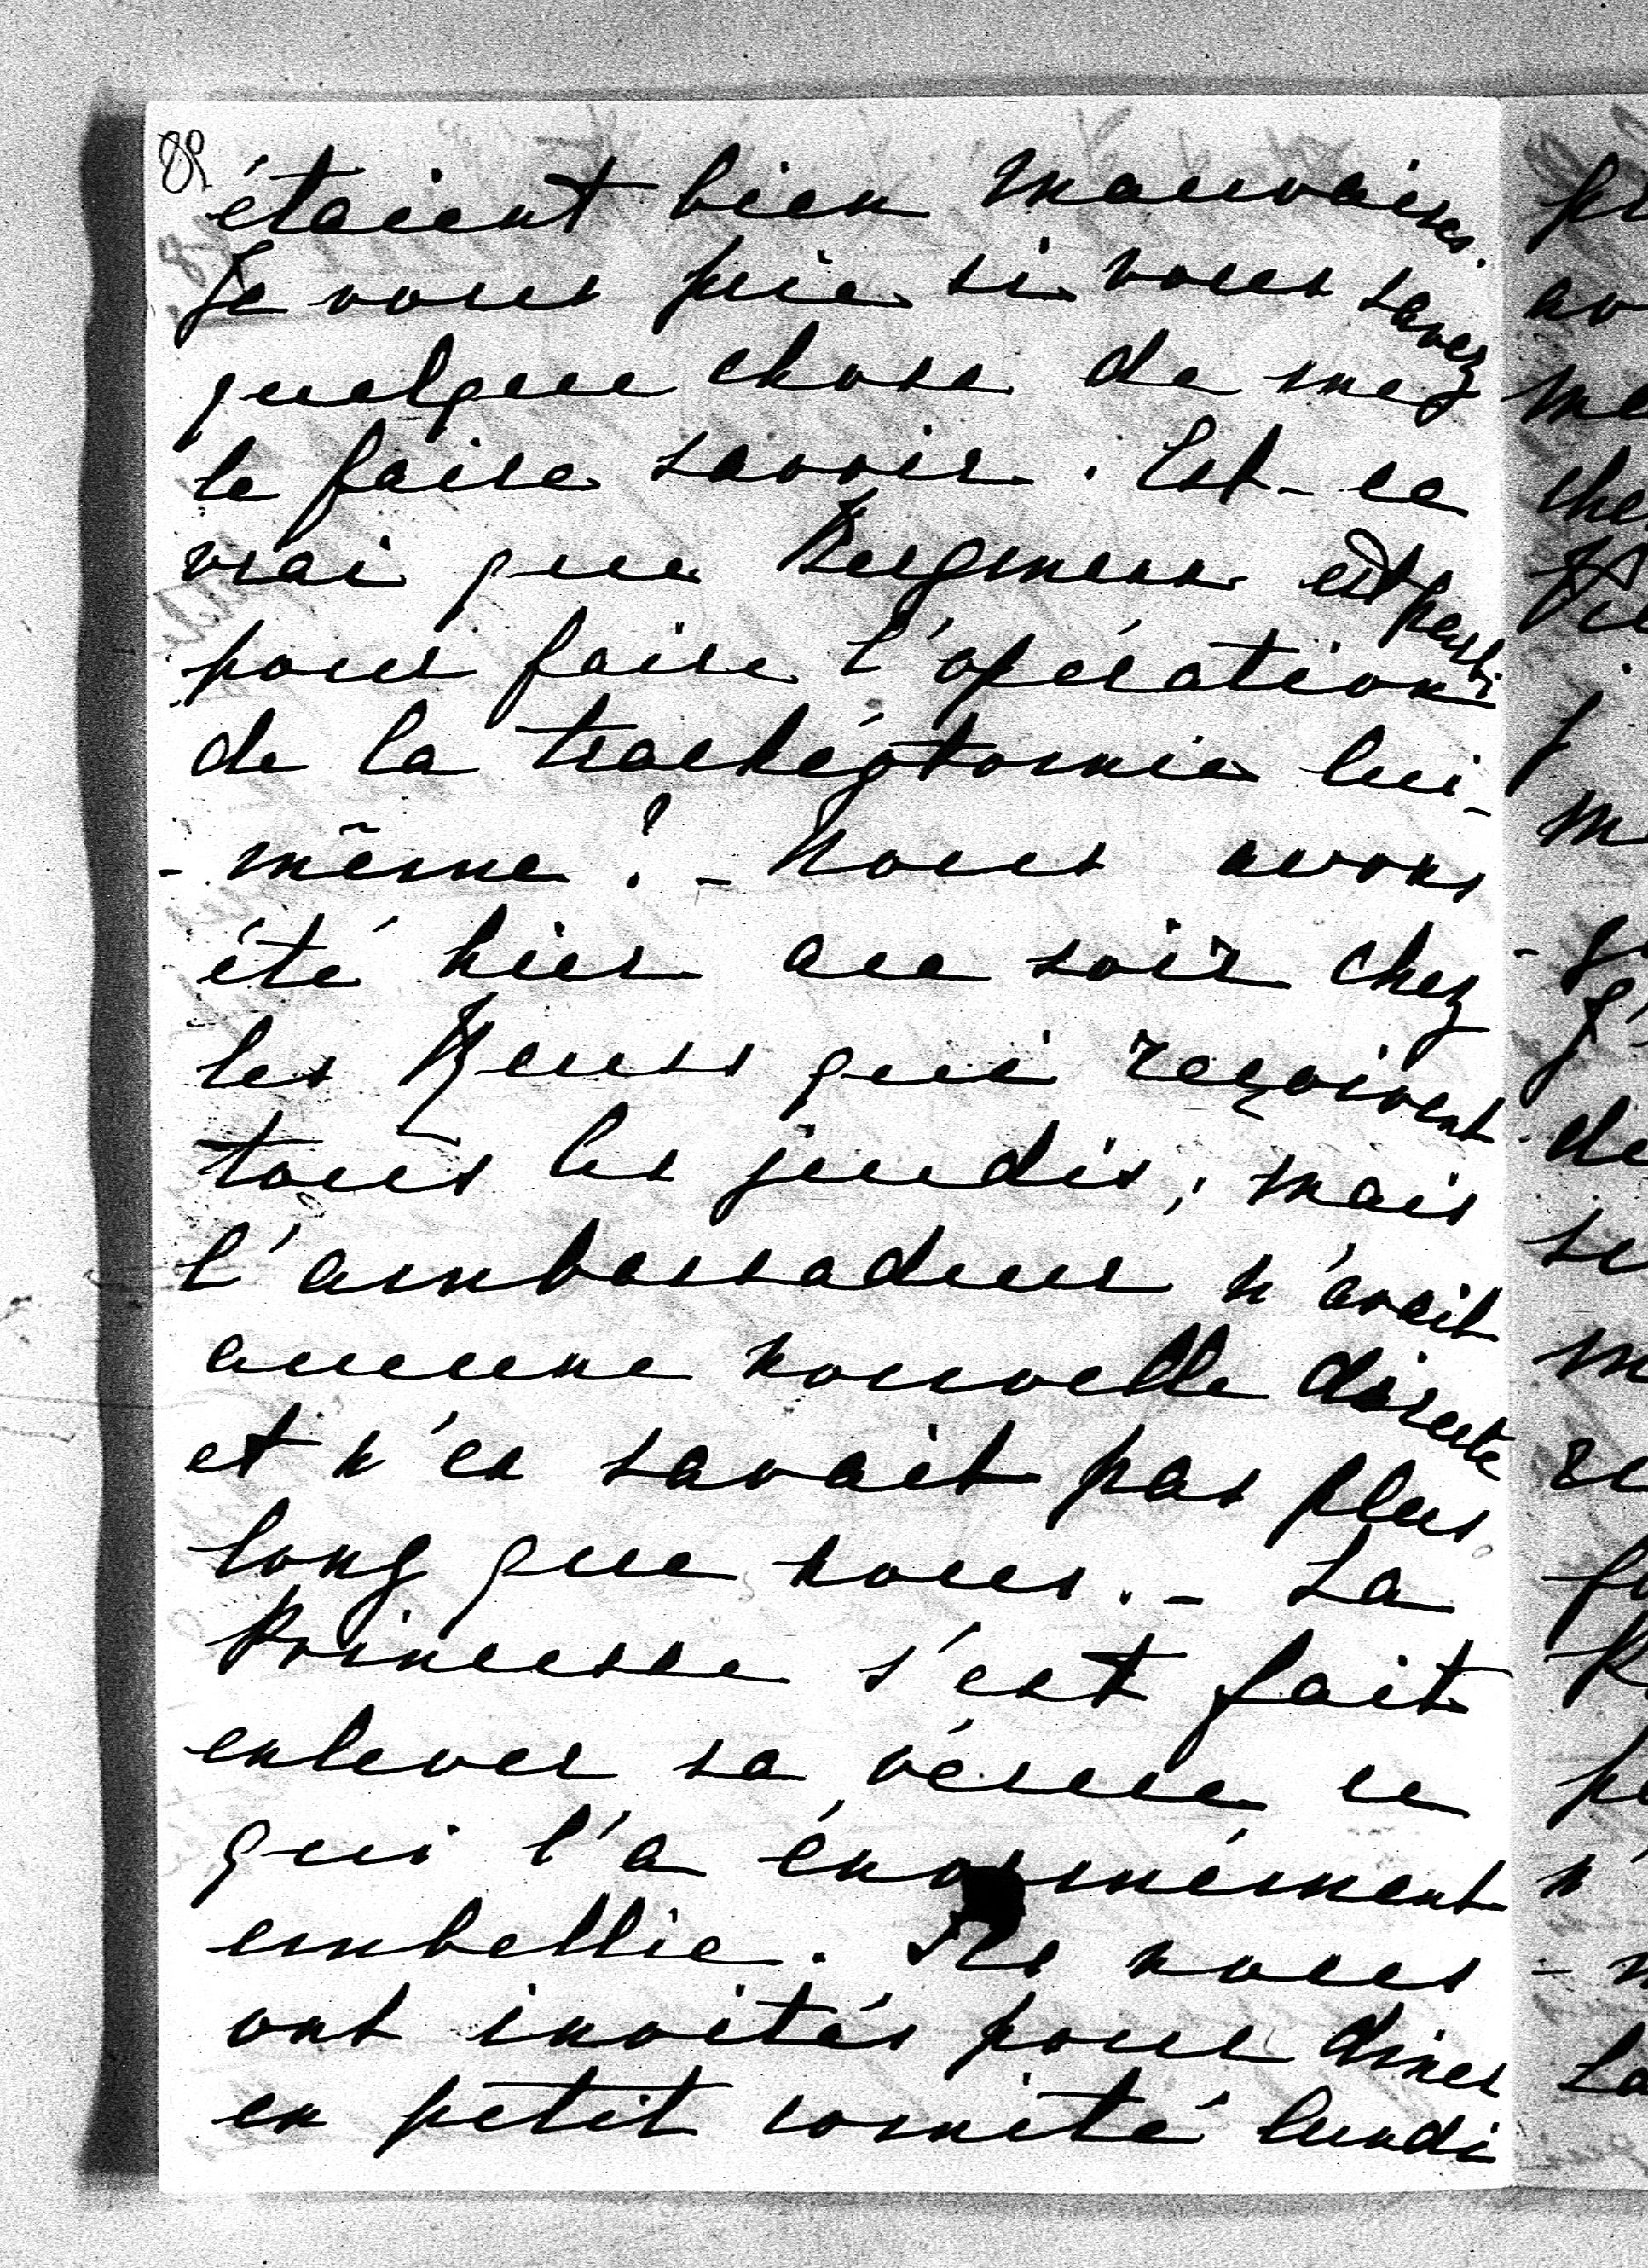 étaient bien mauvaises.
Je vous prie si vous savez
quelque chose de me
le faire savoir. Est-ce
vrai que Bergmann est parti
pour faire l'opération
de la trachéotomie lui-
-même? - Nous avons
été hier au soir chez
les Reuss qui reçoivent
tous les jeudis; mais
l'ambassadeur n'avait
aucune nouvelle directe
et n'en savait pas plus
long que nous. - La
Princesse s'est fait
enlever sa verrue ce
qui l'a énormément
embellie. Ils nous
ont invités pour diner
en petit comité lundi